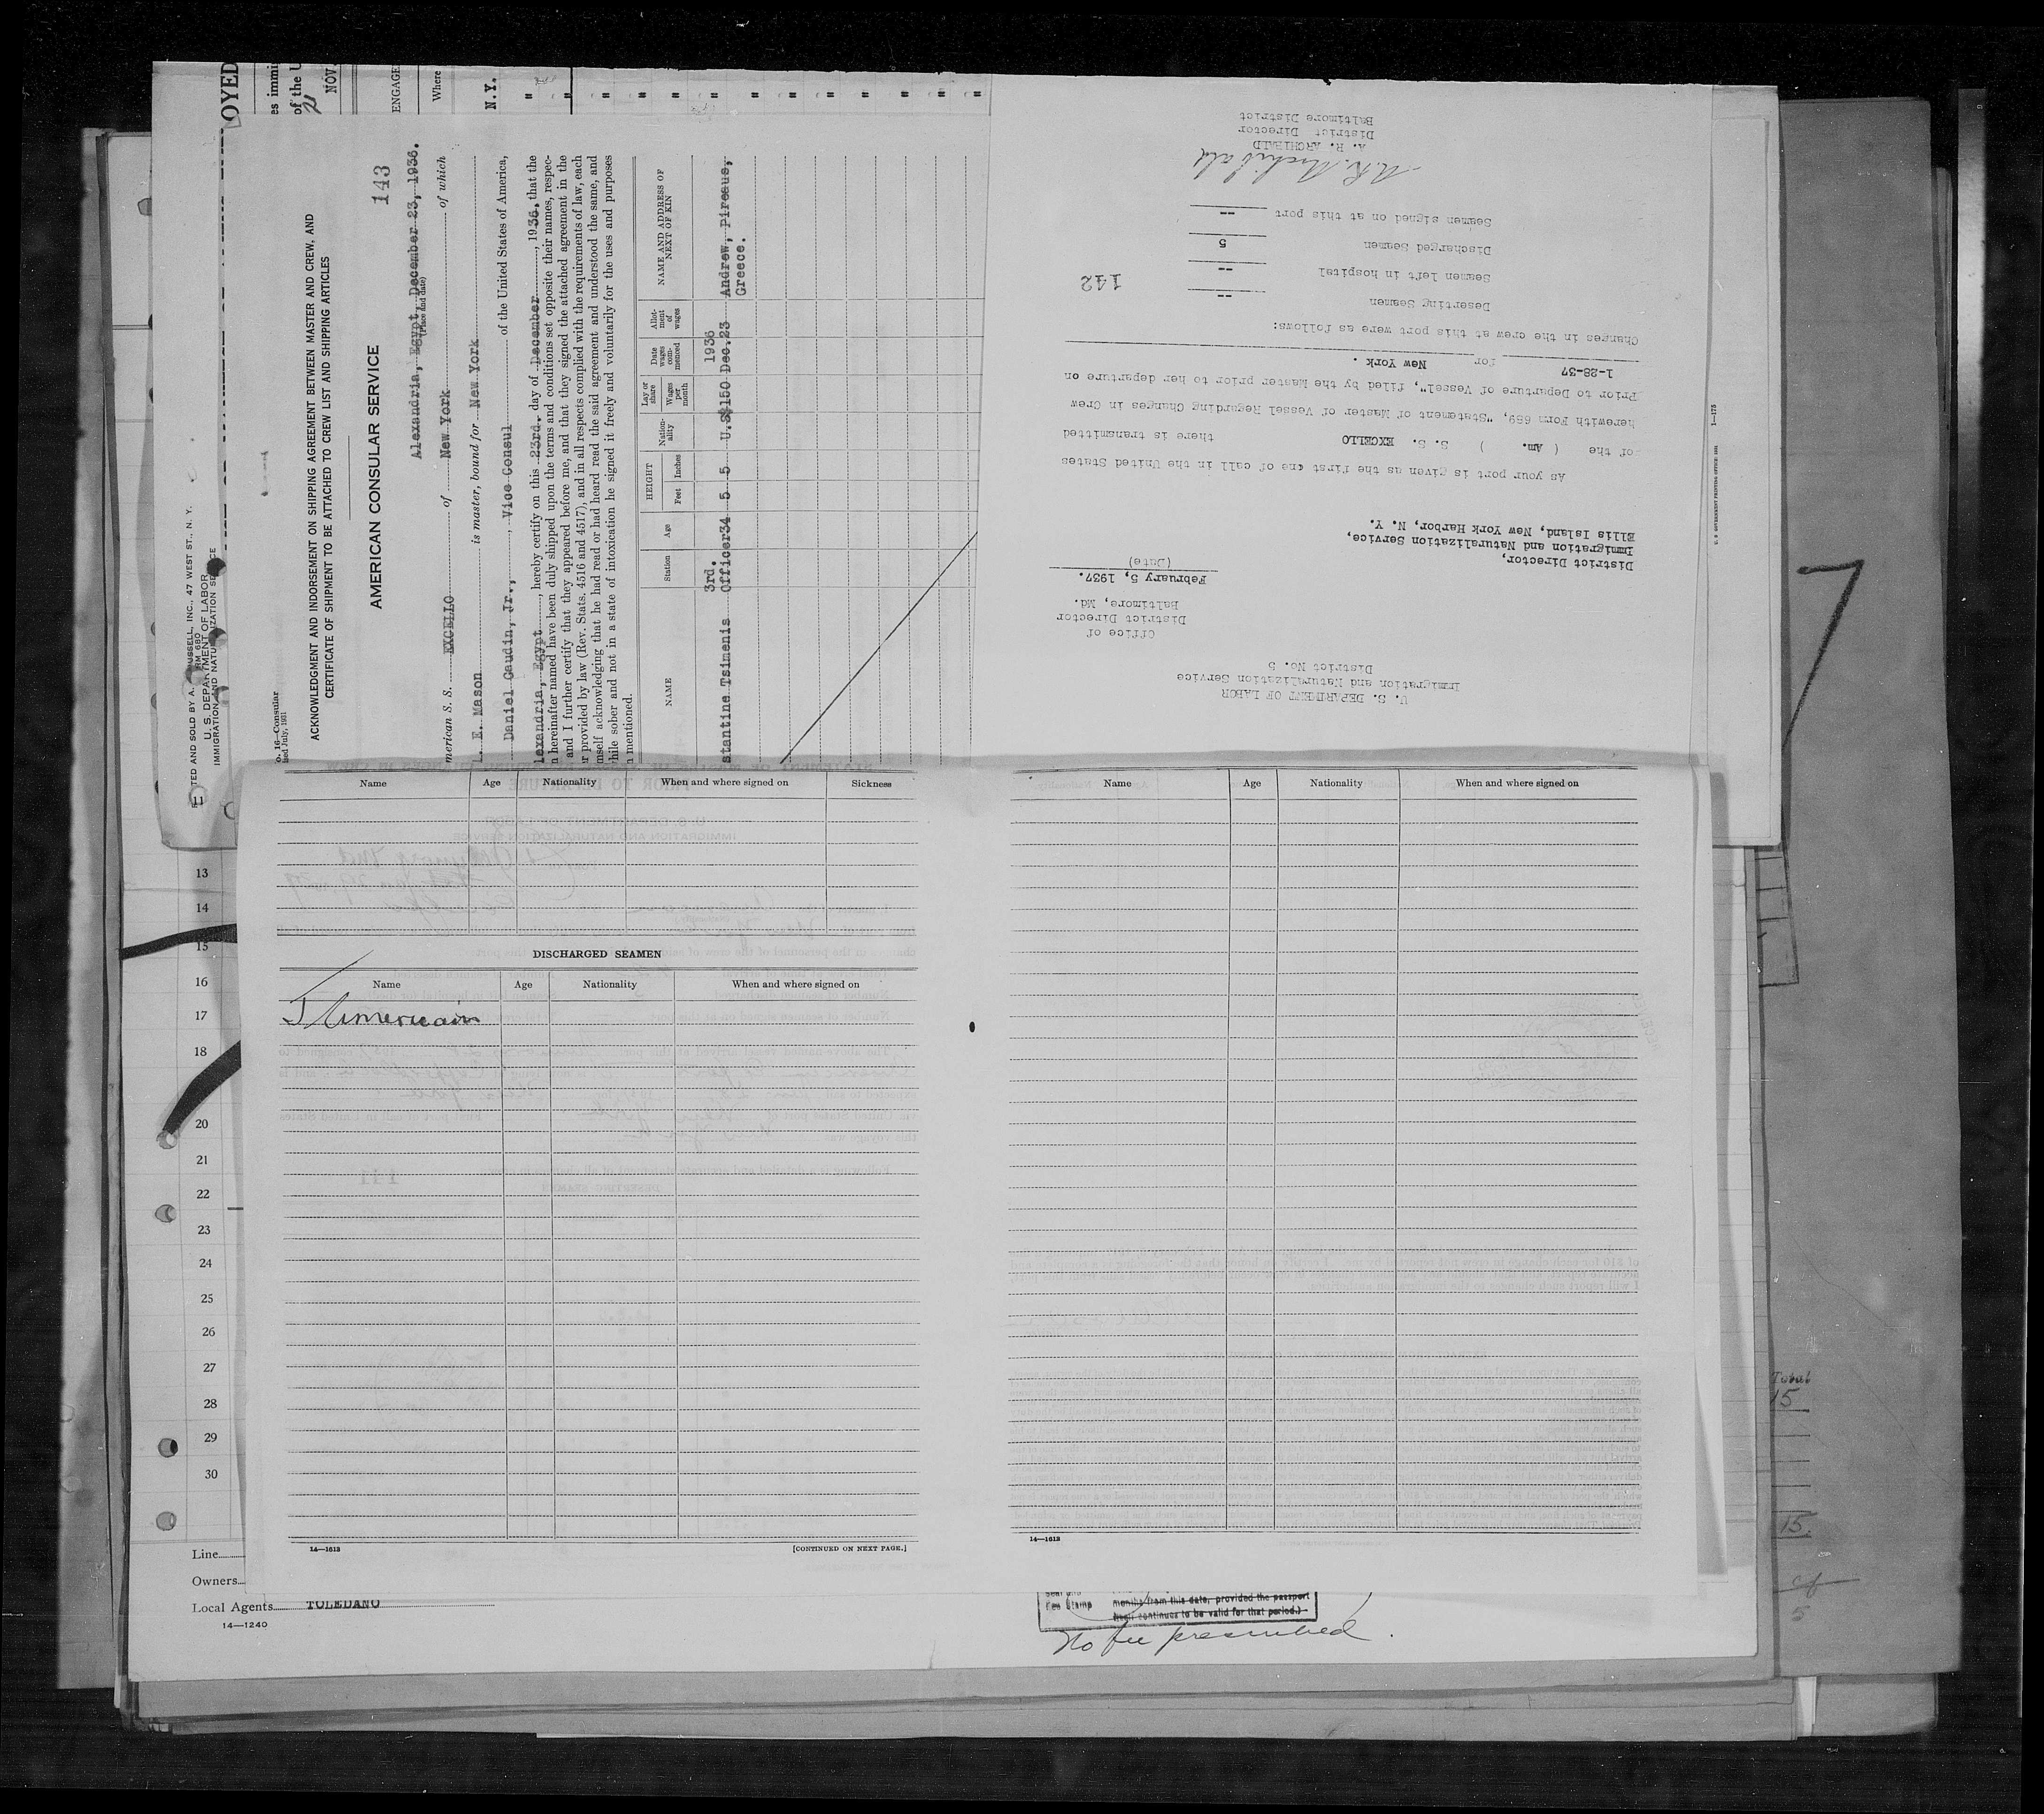 OYED
es immi
of the U
NOV.
ENGAGE
Where
N.Y.
TED AND SOLD BY A. USSELL, INC., 47 WEST ST., N. Y.
U. S. DEPARTMENT OF LABOR
IMMIGRATION AND NATURALIZATION SERVICE
o. 16—Consular
ACKNOWLEDGMENT AND INDORSEMENT ON SHIPPING AGREEMENT BETWEEN MASTER AND CREW, AND
CERTIFICATE OF SHIPMENT TO BE ATTACHED TO CREW LIST AND SHIPPING ARTICLES
143
AMERICAN CONSULAR SERVICE
Alexandria, Egypt, December 23, 1936.
(Place and date)
merican S. S. EXCELLO of New York of which
. E. Mason is master, bound for New York
Daniel Gaudin, Jr., Vice Consul of the United States of America,
lexandria, Egypt, hereby certify on this 23rd. day of December, 1936, that the
hereinafter named have been duly shipped upon the terms and conditions set opposite their names, respec-
and I further certify that they appeared before me, and that they signed the attached agreement in the
r provided by law (Rev. Stats. 4516 and 4517), and in all respects complied with the requirements of law, each
mself acknowledging that he had read or had heard read the said agreement and understood the same, and
hile sober and not in a state of intoxication he signed it freely and voluntarily for the uses and purposes
mentioned.
NAME Station Age HEIGHT Feet Inches Nation-ality Lay or share Wages per month Date wages com-menced Allot-ment of wages NAME AND ADDRESS OF NEXT OF KIN
3rd. 1936
stantine Tsimenis Officer 34 5 5 U.S. $150 Dec.23 Andrew, Piraeus,
Greece.
U. S. DEPARTMENT OF LABOR
Immigration and Naturalization Service
District No. 5
Office of
District Director
Baltimore, Md.
February 5, 1937.
(Date)
District Director,
Immigration and Naturalization Service,
Ellis Island, New York Harbor, N. Y.
As your port is given as the first one of call in the United States
of the ( Am. ) S. S. EXCELLO there is transmitted
herewith Form 689, "Statement of Master of Vessel Regarding Changes in Crew
Prior to Departure of Vessel", filed by the Master prior to her departure on
1-28-37 for New York .
Changes in the crew at this port were as follows:
Deserting Seamen --
142
Seamen left in hospital --
Discharged Seamen 5
Seamen signed on at this port --
A.R. Archibald
A. R. ARCHIBALD
District Director
Baltimore District
1—175
Name Age Nationality When and where signed on Sickness
DISCHARGED SEAMEN
Name Age Nationality When and where signed on
14—1613
[CONTINUED ON NEXT PAGE.]
Name Age Nationality When and where signed on
14—1613
11
13
14
15
16
17
18
20
21
22
23
24
25
26
27
28
29
30
Line
Owners
Local Agents TOLEDANO
14—1240
Fee Stamp months from this date, provided the passport
continues to be valid for that period.)
No fee prescribed.
7
Total
15
15.
5